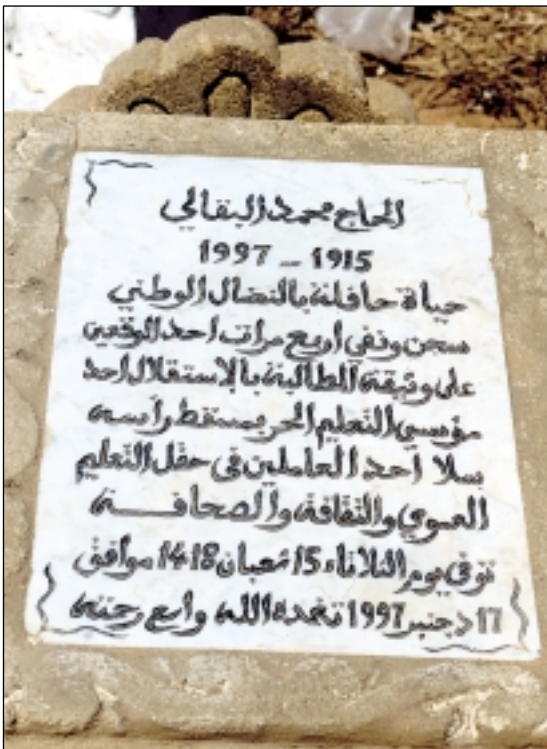 الحاج محمد البقالي
1915 – 1997
حياة حافلة بالنضال الوطني
سجن ونفي اربع مرات احد الموقعين
على وثيقة المطالبة بالإستقلال احد
مؤسسي التعليم الحر بمسقط رأسه
بسلا احد العاملين في حقل التعليم
والثقافة والصحافة
توفي يوم الثلاثاء 15 شعبان 1418 موافق
17 دجنبر 1997 تغمده الله واسع رحمته